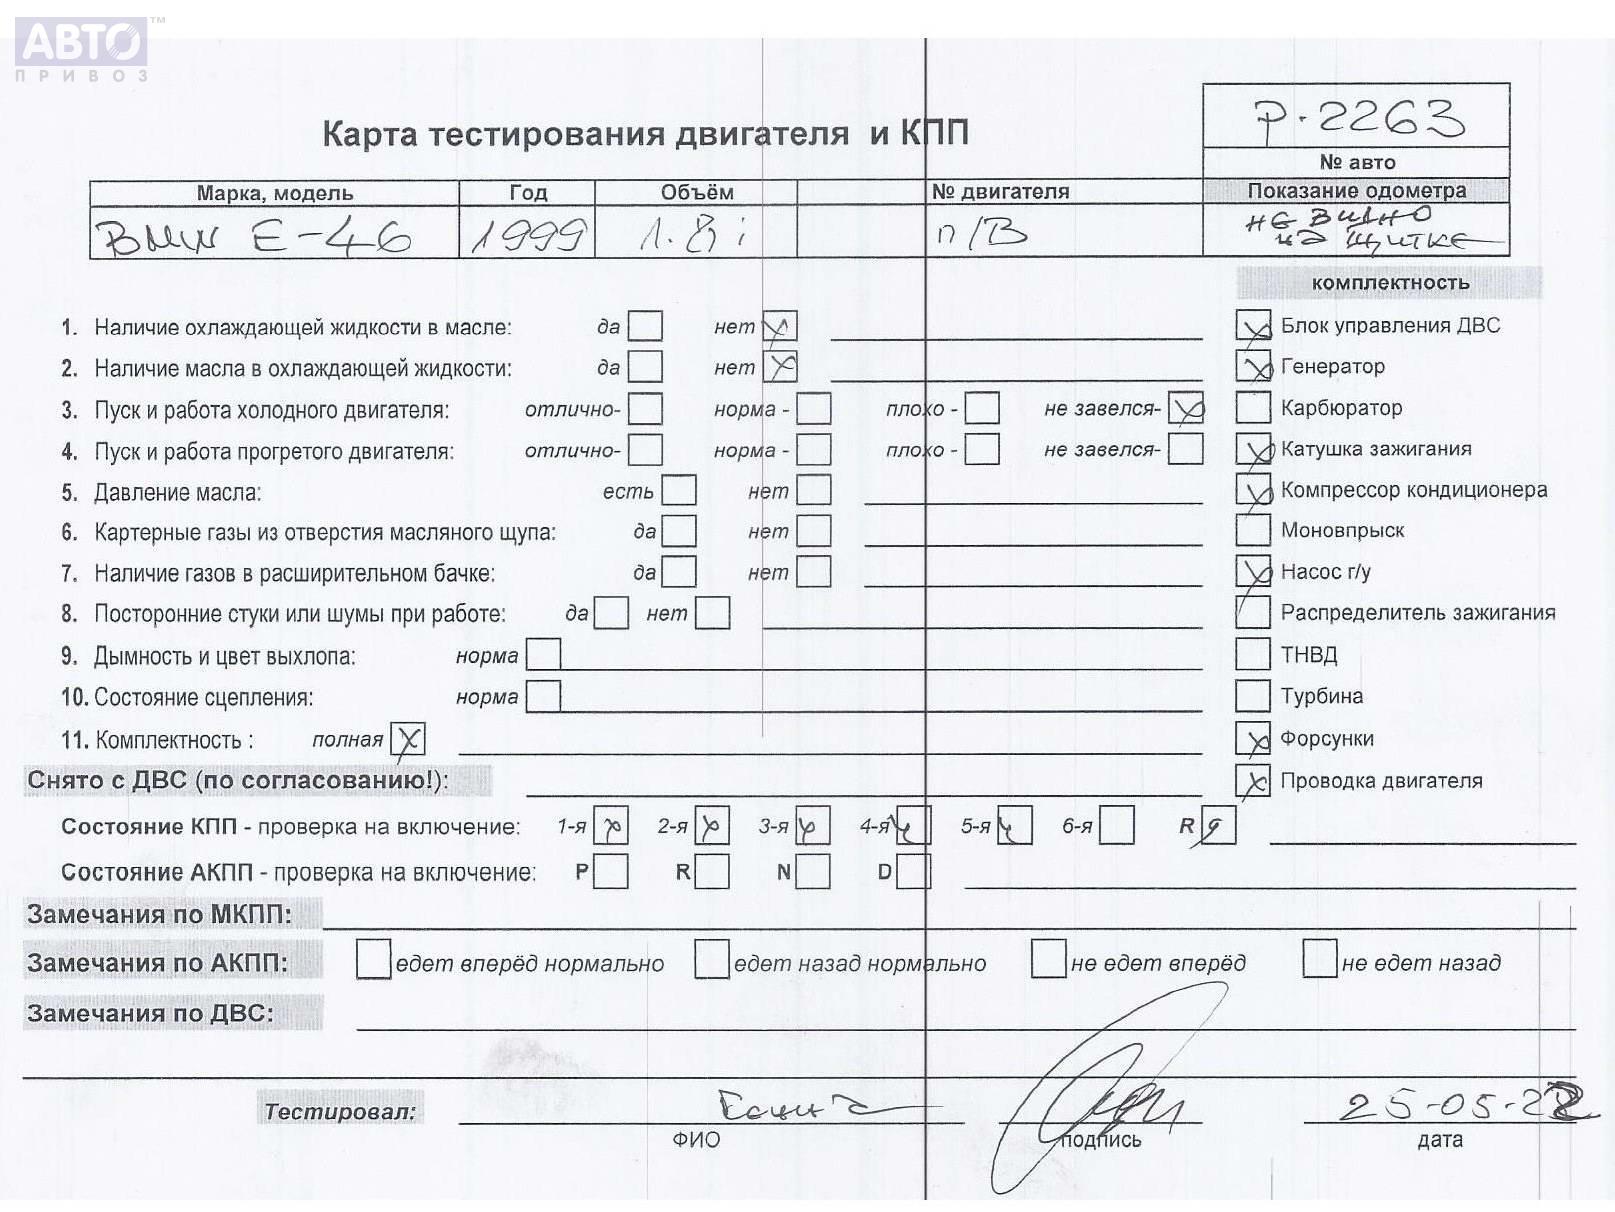 АВТО™
ПРИВОЗ
Р-2263
Карта тестирования двигателя и КПП
№ авто
Марка, модель Год Объём № двигателя Показание одометра
BMW E-46 1999 1.8i п/В не видно на щитке
комплектность
1. Наличие охлаждающей жидкости в масле: да нет Блок управления ДВС
2. Наличие масла в охлаждающей жидкости: да нет Генератор
3. Пуск и работа холодного двигателя: отлично- норма - плохо - не завелся- Карбюратор
4. Пуск и работа прогретого двигателя: отлично- норма - плохо - не завелся- Катушка зажигания
5. Давление масла: есть нет Компрессор кондиционера
6. Картерные газы из отверстия масляного щупа: да нет Моновпрыск
7. Наличие газов в расширительном бачке: да нет Насос г/у
8. Посторонние стуки или шумы при работе: да нет Распределитель зажигания
9. Дымность и цвет выхлопа: норма ТНВД
10. Состояние сцепления: норма Турбина
11. Комплектность : полная Форсунки
Снято с ДВС (по согласованию!): Проводка двигателя
Состояние КПП - проверка на включение: 1-я 2-я 3-я 4-я 5-я 6-я R
Состояние АКПП - проверка на включение: P R N D
Замечания по МКПП:
Замечания по АКПП: едет вперёд нормально едет назад нормально не едет вперёд не едет назад
Замечания по ДВС:
Тестировал: 25-05-22
ФИО подпись дата